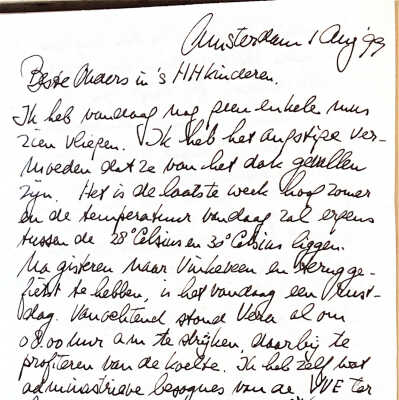 Amsterdam 1 Aug '99
Beste Ouders in 's HHkinderen.
Ik heb vandaag nog geen enkele mus
zien vliegen. Ik heb het angstige ver-
moeden dat ze van het dak gevallen
zijn. Het is de laatste week hoog zomer
en de temperatuur vandaag zal ergens
tussen de 28° Celsius en 30° Celsius liggen.
Na gisteren naar Vinkeveen en terug ge-
fietst te hebben, is het vandaag een rust-
dag. Vanochtend stond Vera al om
08.00 uur a m te strijken daarbij te
profiteren van de koelte. Ik heb zelf wat
administratieve besognes van de VVE ter